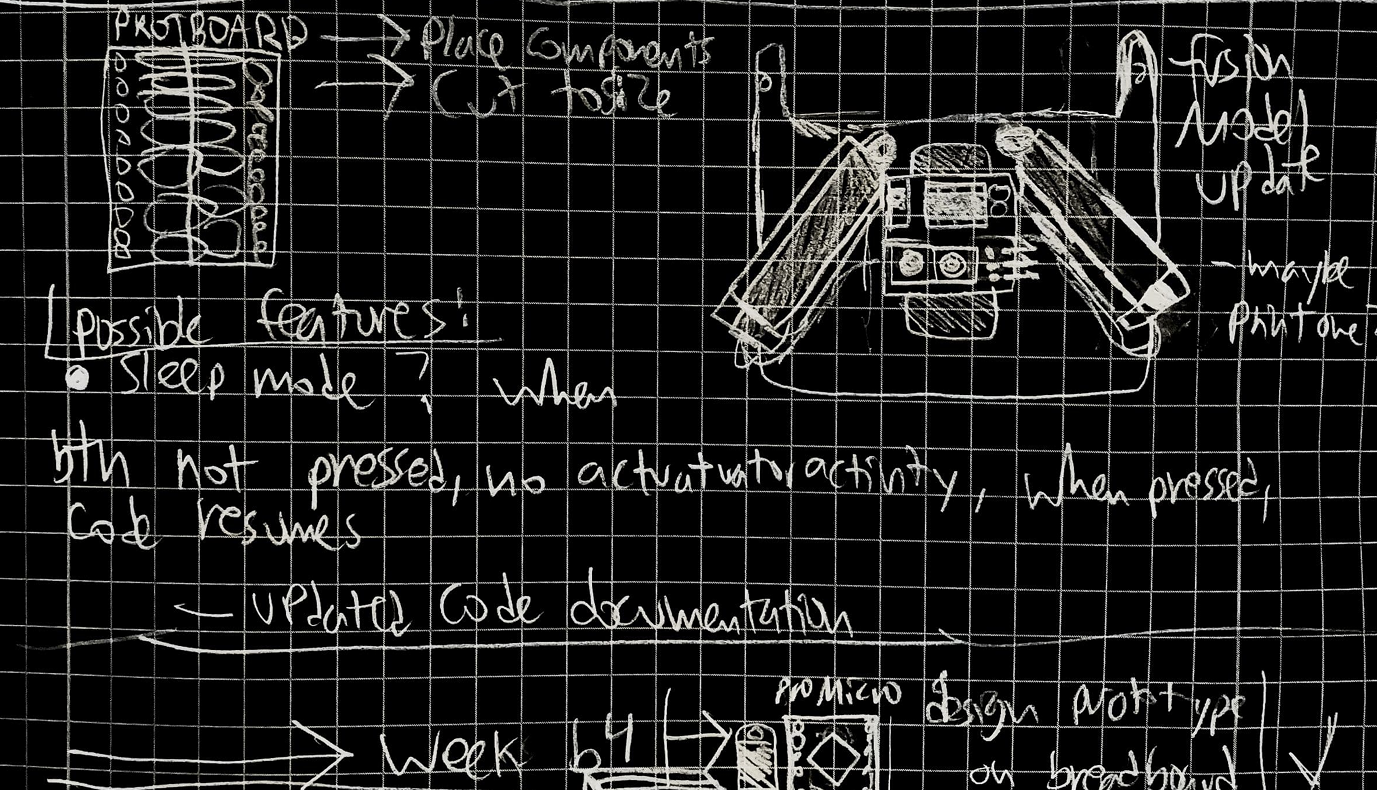 PROTBOARD
Place Components
Cut to size
fusion
Model
update
- maybe
Print one
possible features:
• Sleep mode ? when
btn not pressed, no actuatuator activity, when pressed,
Code resumes
- updated Code documentation
Week 4
Pro Micro
design prototype
on breadboard